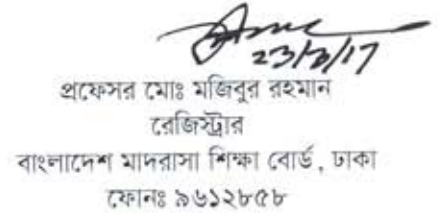 23/8/17
প্রফেসর মোঃ মজিবুর রহমান
রেজিস্ট্রার
বাংলাদেশ মাদরাসা শিক্ষা বোর্ড, ঢাকা
ফোনঃ ৯৬১২৮৫৮